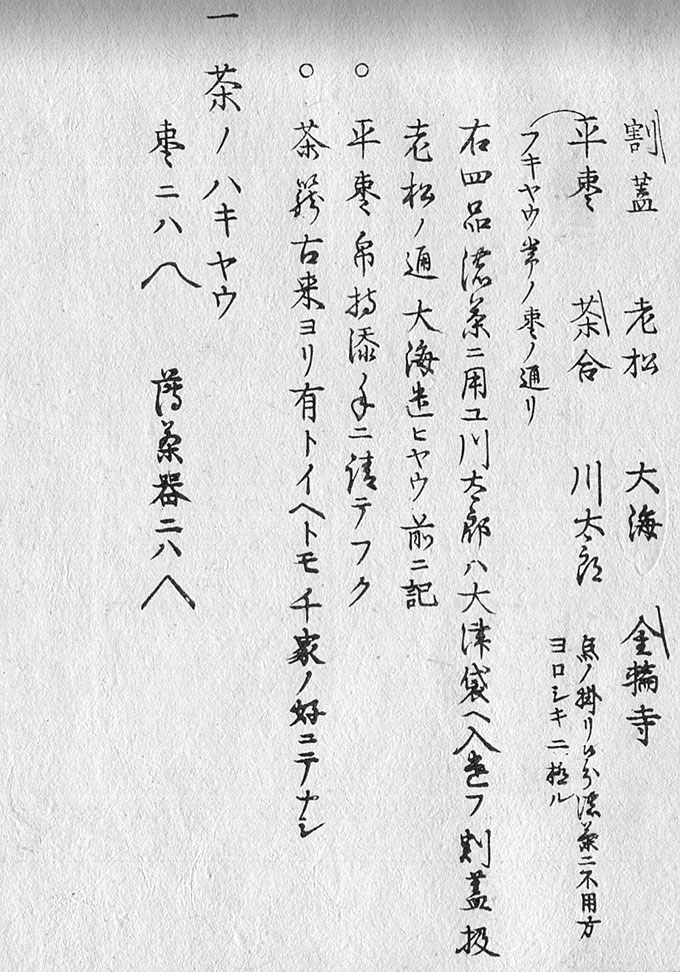 割蓋 老松 大海 金輪寺
平棗 茶合 川太郎 点ノ掛リ候分濃茶ニ不用方
ヨロシキニ極ル
フキヤウ常ノ棗ノ通リ
右四品濃茶ニ用ユ川太郎ハ大津袋ヘ入遣フ割蓋扱
老松ノ通大海遣ヒヤウ前ニ記
○ 平棗帛持添ノ手ニ請テフク
○ 茶籠古来ヨリ有トイヘトモ千家ノ好ニテナシ
一 茶ノハキヤウ
棗ニハ 薄茶器ニハ